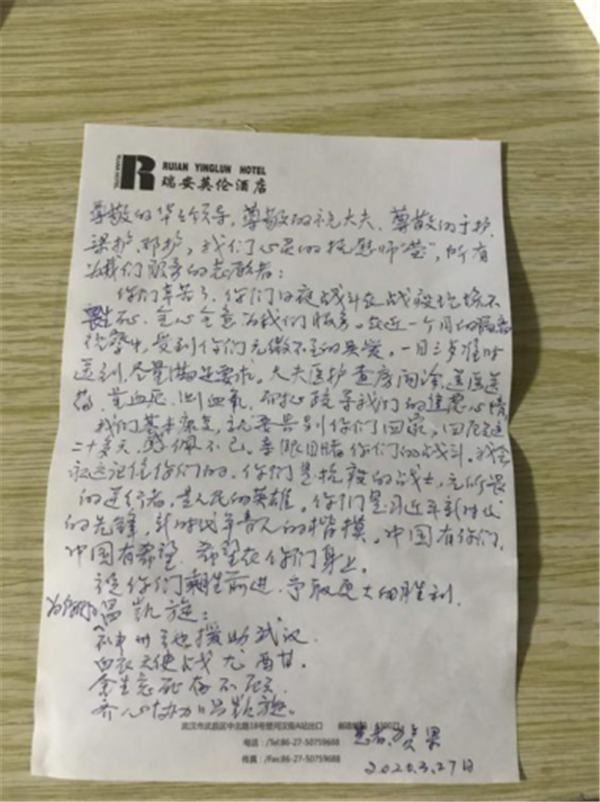 RUIAN HOTEL
RUIAN YINGLUN HOTEL
瑞安英伦酒店
尊敬的华主领导,尊敬的祝大夫、尊敬的于护,
梁护、邓护,我们心灵的抚慰师"莹",所有
为我们服务的志愿者:
你们辛苦了,你们日夜战斗在战疫
生死,全心全意为我们服务。在近一个月的
受到你们无微不至的关爱。一日三歺准时
送到,尽量满足要求。大夫医护查房问诊,送医送
药,量血压,测血氧,耐心疏导我们的焦虑心情
我们基本康复,就要告别你们回家,回忆这
二十多天,感佩不已。亲眼目睹你们的战斗。我会
永远记住你们的,你们是抗疫的战士,无所畏
的逆行者,是人民的英雄。你们是习近平新时代
的先锋,新时代年青人的楷模。中国有你们,
中国有希望,希望在你们身上。
祝你们乘胜前进,争取更大的胜利.
为你们唱凯旋:
神州主地援助武汉
白衣天使战尤酣甘.
舍生忘死存不
齐心协力唱凯旋。
武汉市武昌区中北路18号楚河汉街A站出口
电话:/Tel:86-27-50759688
传真:/Fax:86-27-50759688
患者:
2020.3.27日